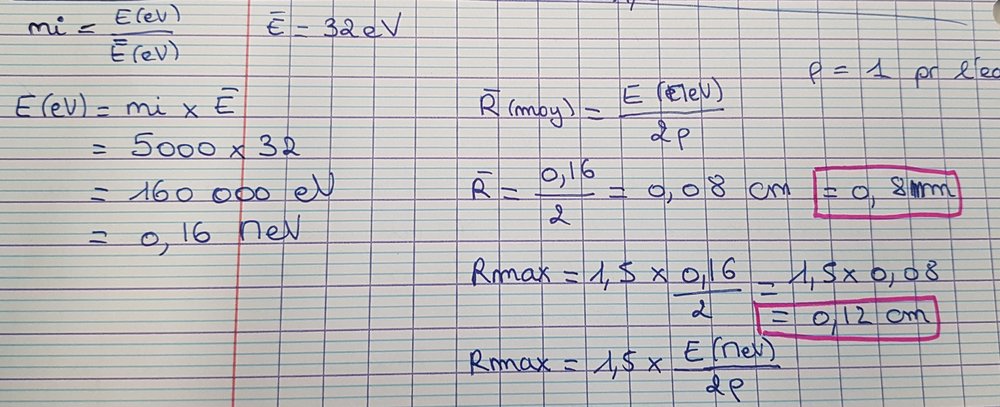 mi = E(eV) / Ē(eV)    Ē = 32eV
ρ = 1 pr l'eau
E(eV) = mi × Ē
= 5000 × 32
= 160 000 eV
= 0,16 MeV
R̄(moy) = E(MeV) / 2ρ
R̄ = 0,16 / 2 = 0,08 cm = 0,8mm
Rmax = 1,5 × 0,16 / 2 = 1,5 × 0,08
= 0,12 cm
Rmax = 1,5 × E(MeV) / 2ρ